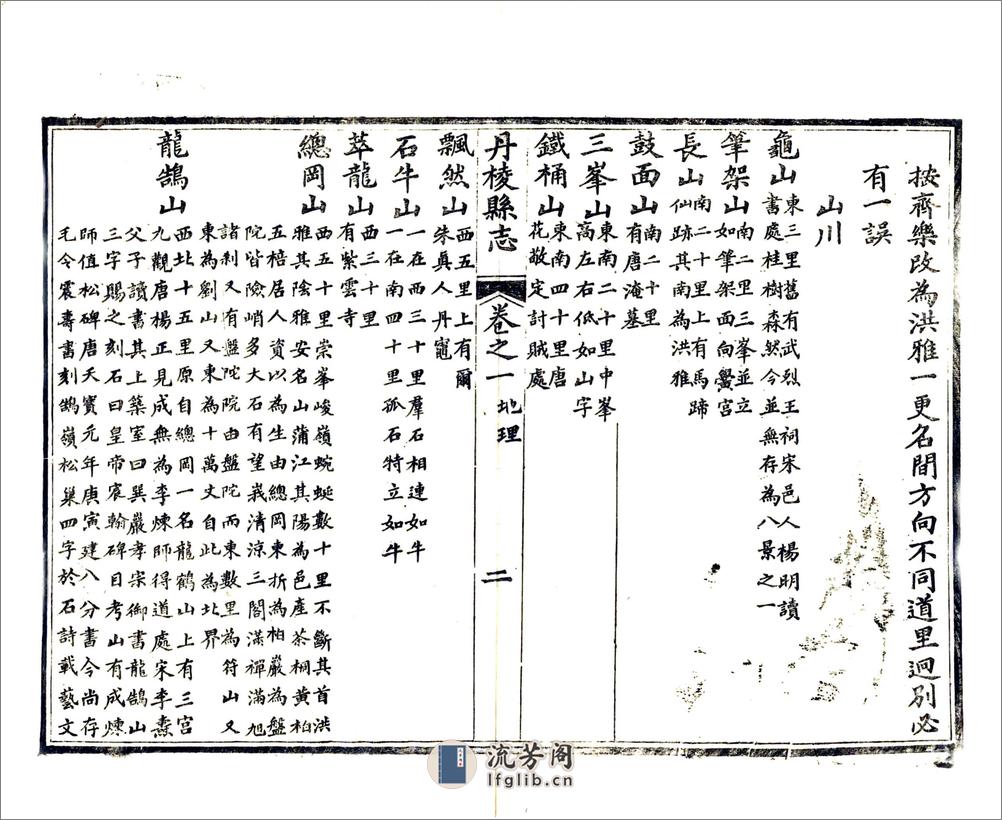 按齊樂改為洪雅一更名間方向不同道里迥別必
有一誤
山川
龜山東三里舊有武烈王祠宋邑人楊明讀
書處桂樹森然今並無存為八景之一
筆架山南二里三峯並立
如筆架面向黌宮
長山南二十里上有馬蹄
仙跡其南為洪雅
鼓面山南二十里
有唐淹墓
三峯山東南二十里中峯
高左右低如山字
鐵桶山東南四十里唐
花敬定討賊處
丹棱縣志 卷之一 地理 二
飄然山西五里上有爾
朱真人丹竈
石牛山一在西三十里羣石相連如牛
一在南四十里孤石特立如牛
萃龍山西三十里
有紫雲寺
總岡山西五十里崇峯峻嶺蜿蜒數十里不斷其首洪
雅其陰雅安名山蒲江其陽為邑產茶桐黃柏
五棓居人資以為生由總岡東折為柏巖為盤
院皆險峭多大石有望峩清涼三閣滿禪滿旭
諸剎又有盤陀院由盤陀而東數里為符山又
東為劉山又東為十萬丈自此為北界
龍鵠山西北十五里原自總岡一名龍鶴山上有三宮
九觀唐楊正見成無為李煉師得道處宋李燾
父子讀書其上築室曰巽巖孝宗御書龍鵠山
三字賜之刻石曰皇帝宸翰碑目考山有成煉
師值松碑唐天寶元年庚寅建八分書今尚存
毛令震壽書刻鵠嶺松巢四字於石詩載藝文
流芳阁
lfglib.cn